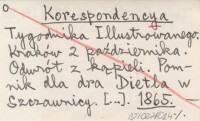 Korespondencya
Tygodnika Illustrowanego.
Kraków 2 października.
Odwrót z kąpieli. Pom-
nik dla dra Dietla w
Szczawnicy. [..]. 1865.